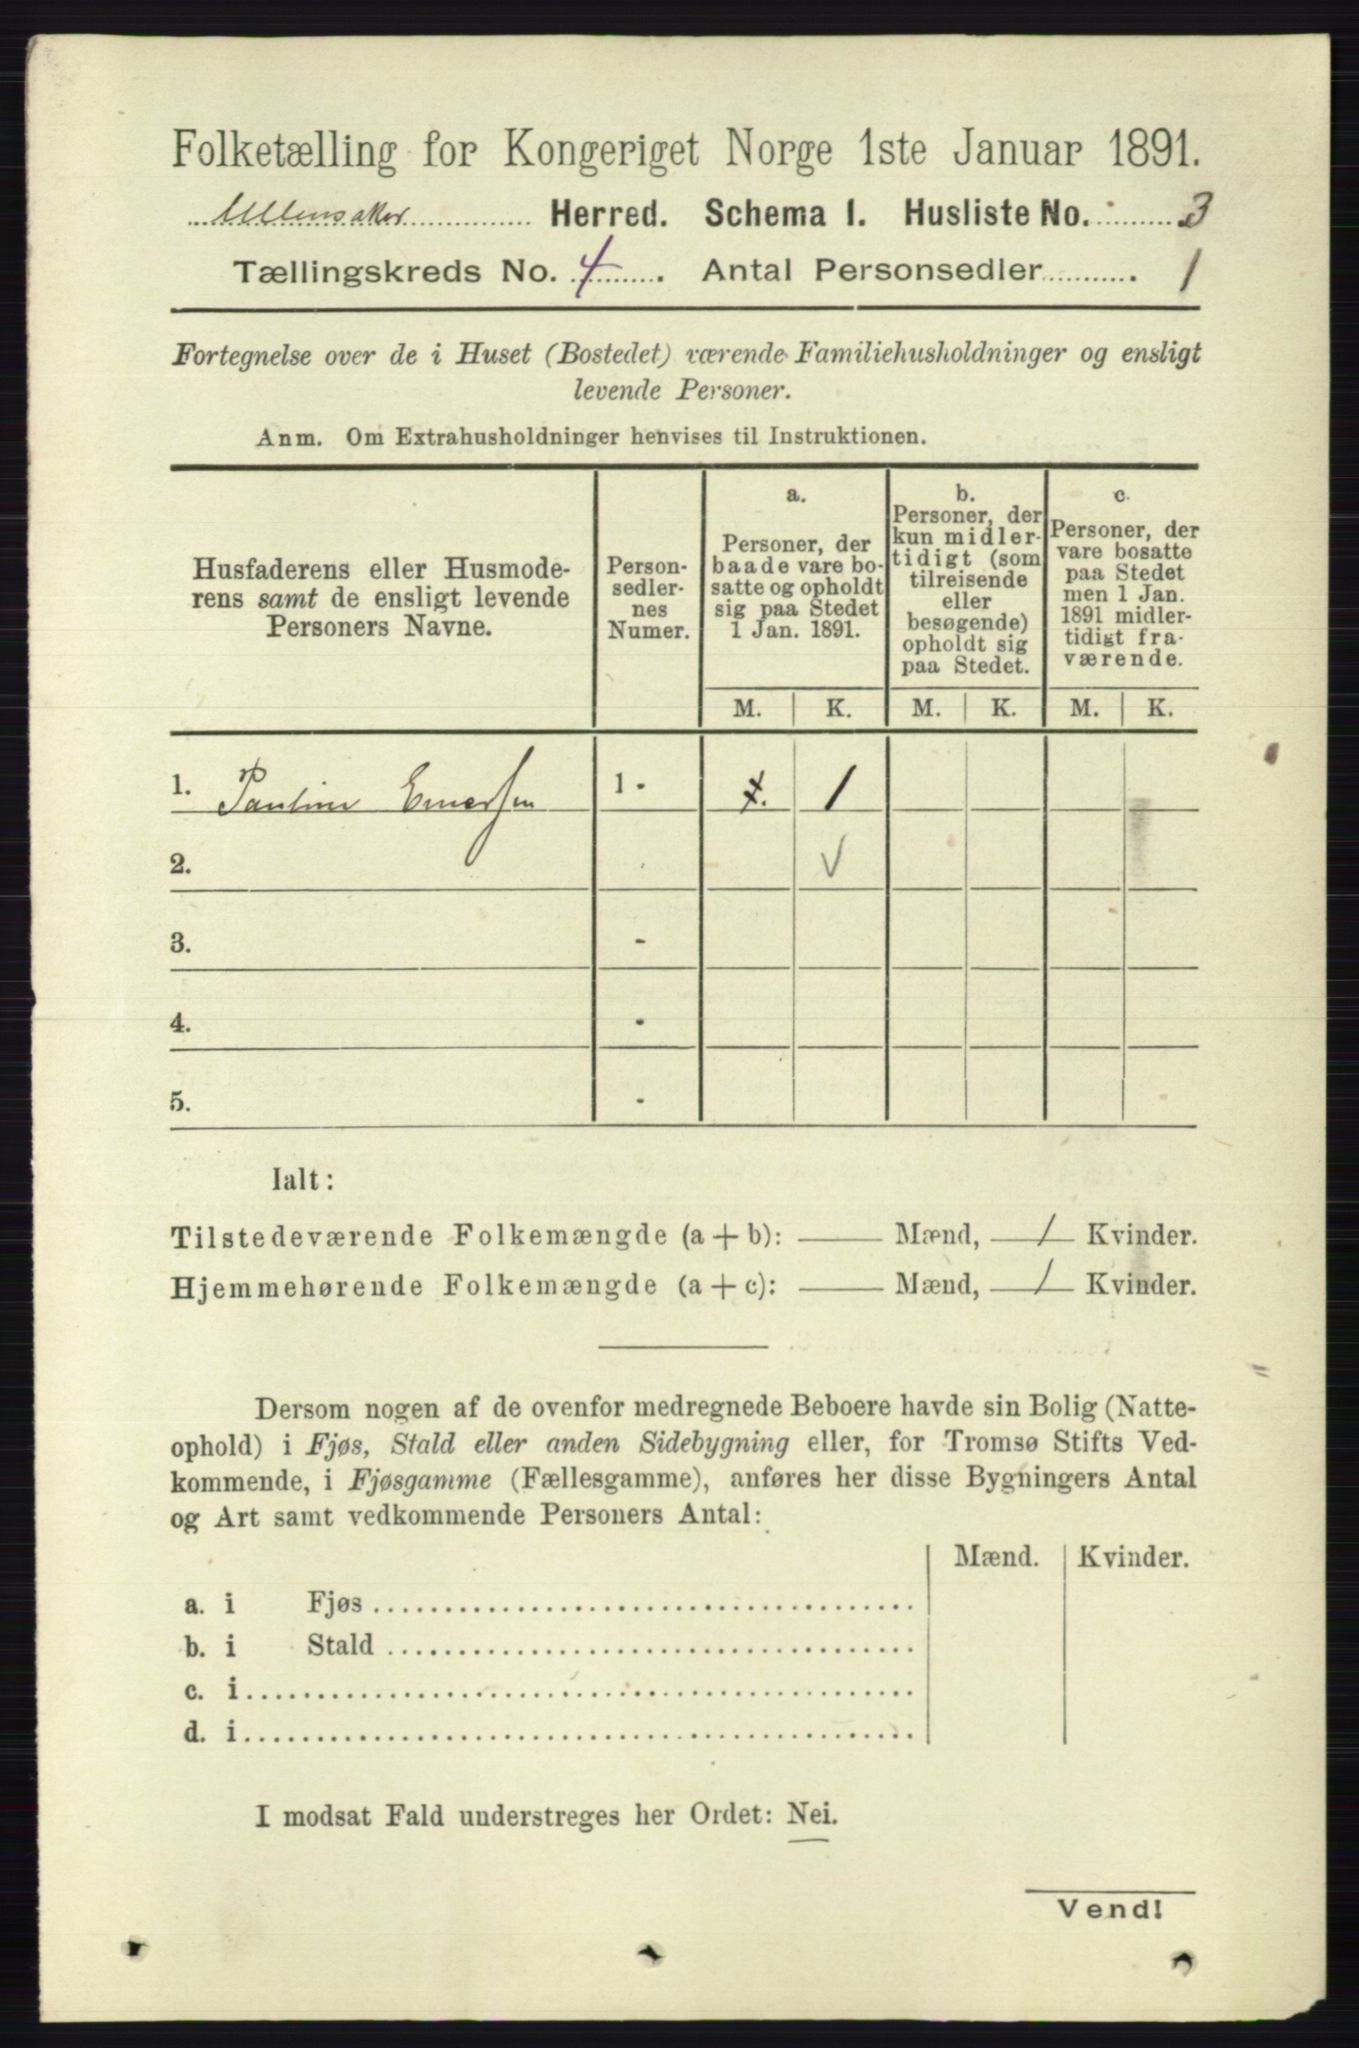 Folketælling for Kongeriget Norge 1ste Januar 1891.
Ullensaker Herred. Schema I. Husliste No. 3
Tællingskreds No. 4. Antal Personsedler 1
Fortegnelse over de i Huset (Bostedet) værende Familiehusholdninger og ensligt
levende Personer.
Anm. Om Extrahusholdninger henvises til Instruktionen.
Husfaderens eller Husmode-
rens samt de ensligt levende
Personers Navne.
Person-
sedler-
nes
Numer.
a.
Personer, der
baade vare bo-
satte og opholdt
sig paa Stedet
1 Jan. 1891.
b.
Personer, der
kun midler-
tidigt (som
tilreisende
eller
besøgende)
opholdt sig
paa Stedet.
c.
Personer, der
vare bosatte
paa Stedet
men 1 Jan.
1891 midler-
tidigt fra-
værende.
M. K. M. K. M. K.
1. Pauline 1 - 1
2.
3. -
4. -
5. -
Ialt:
Tilstedeværende Folkemængde (a + b): — Mænd, 1 Kvinder.
Hjemmehørende Folkemængde (a + c): — Mænd, 1 Kvinder.
Dersom nogen af de ovenfor medregnede Beboere havde sin Bolig (Natte-
ophold) i Fjøs, Stald eller anden Sidebygning eller, for Tromsø Stifts Ved-
kommende, i Fjøsgamme (Fællesgamme), anføres her disse Bygningers Antal
og Art samt vedkommende Personers Antal:
Mænd. Kvinder.
a. i Fjøs
b. i Stald
c. i
d. i
I modsat Fald understreges her Ordet: Nei.
Vend!